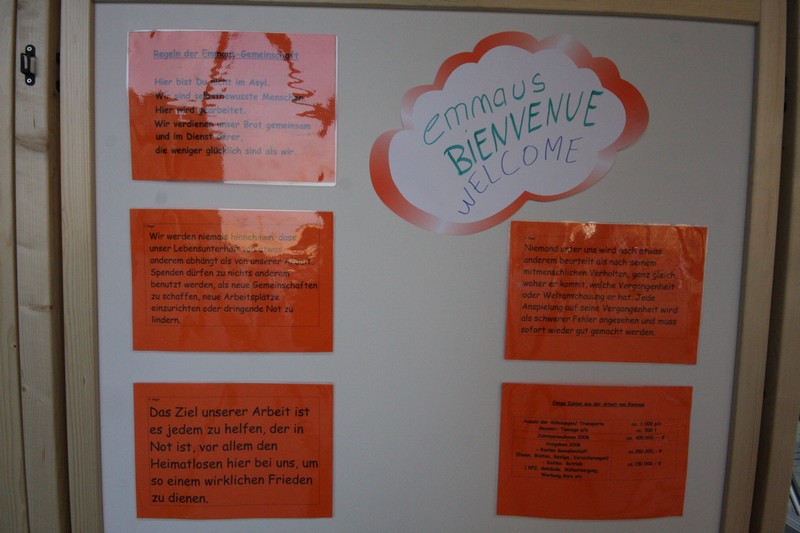 Regeln der Emmaus-Gemeinschaft
Hier bist Du nicht im Asyl.
Wir sind selbstbewusste Menschen
Hier wird gearbeitet.
Wir verdienen unser Brot gemeinsam
und im Dienst derer,
die weniger glücklich sind als wir.
emmaus
BIENVENUE
WELCOME
Wir werden niemals hinnehmen, dass
unser Lebensunterhalt von etwas
anderem abhängt als von unserer Arbeit.
Spenden dürfen zu nichts anderem
benutzt werden, als neue Gemeinschaften
zu schaffen, neue Arbeitsplätze
einzurichten oder dringende Not zu
lindern.
Niemand unter uns wird nach etwas
anderem beurteilt als nach seinem
mitmenschlichen Verhalten, ganz gleich
woher er kommt, welche Vergangenheit
oder Weltanschauung er hat. Jede
Anspielung auf seine Vergangenheit wird
als schwerer Fehler angesehen und muss
sofort wieder gut gemacht werden.
Das Ziel unserer Arbeit ist
es jedem zu helfen, der in
Not ist, vor allem den
Heimatlosen hier bei uns, um
so einem wirklichen Frieden
zu dienen.
Einige Zahlen aus der Arbeit von Emmaus